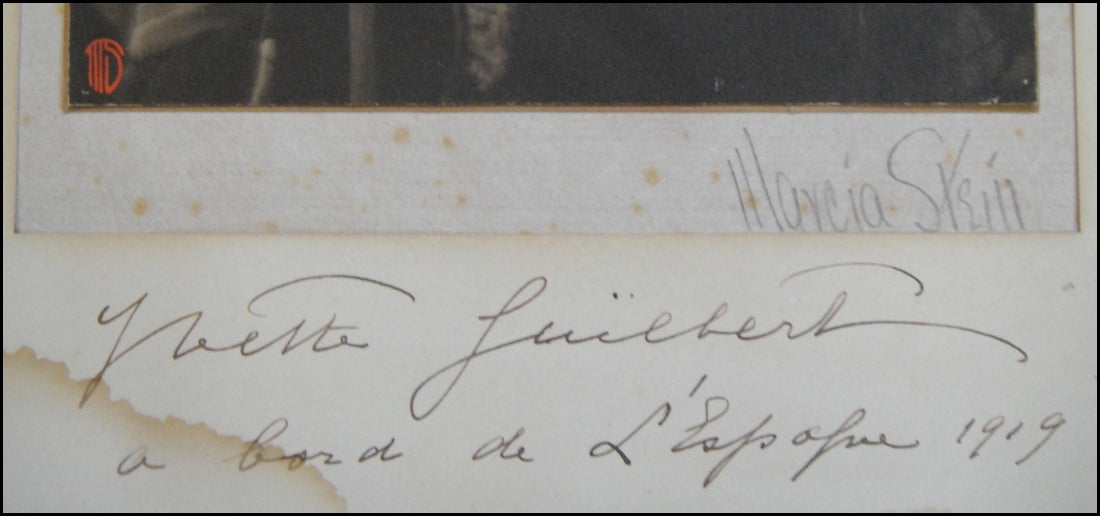 Marcia Stein
Yvette Guilbert
a bord de L'Espagne 1919